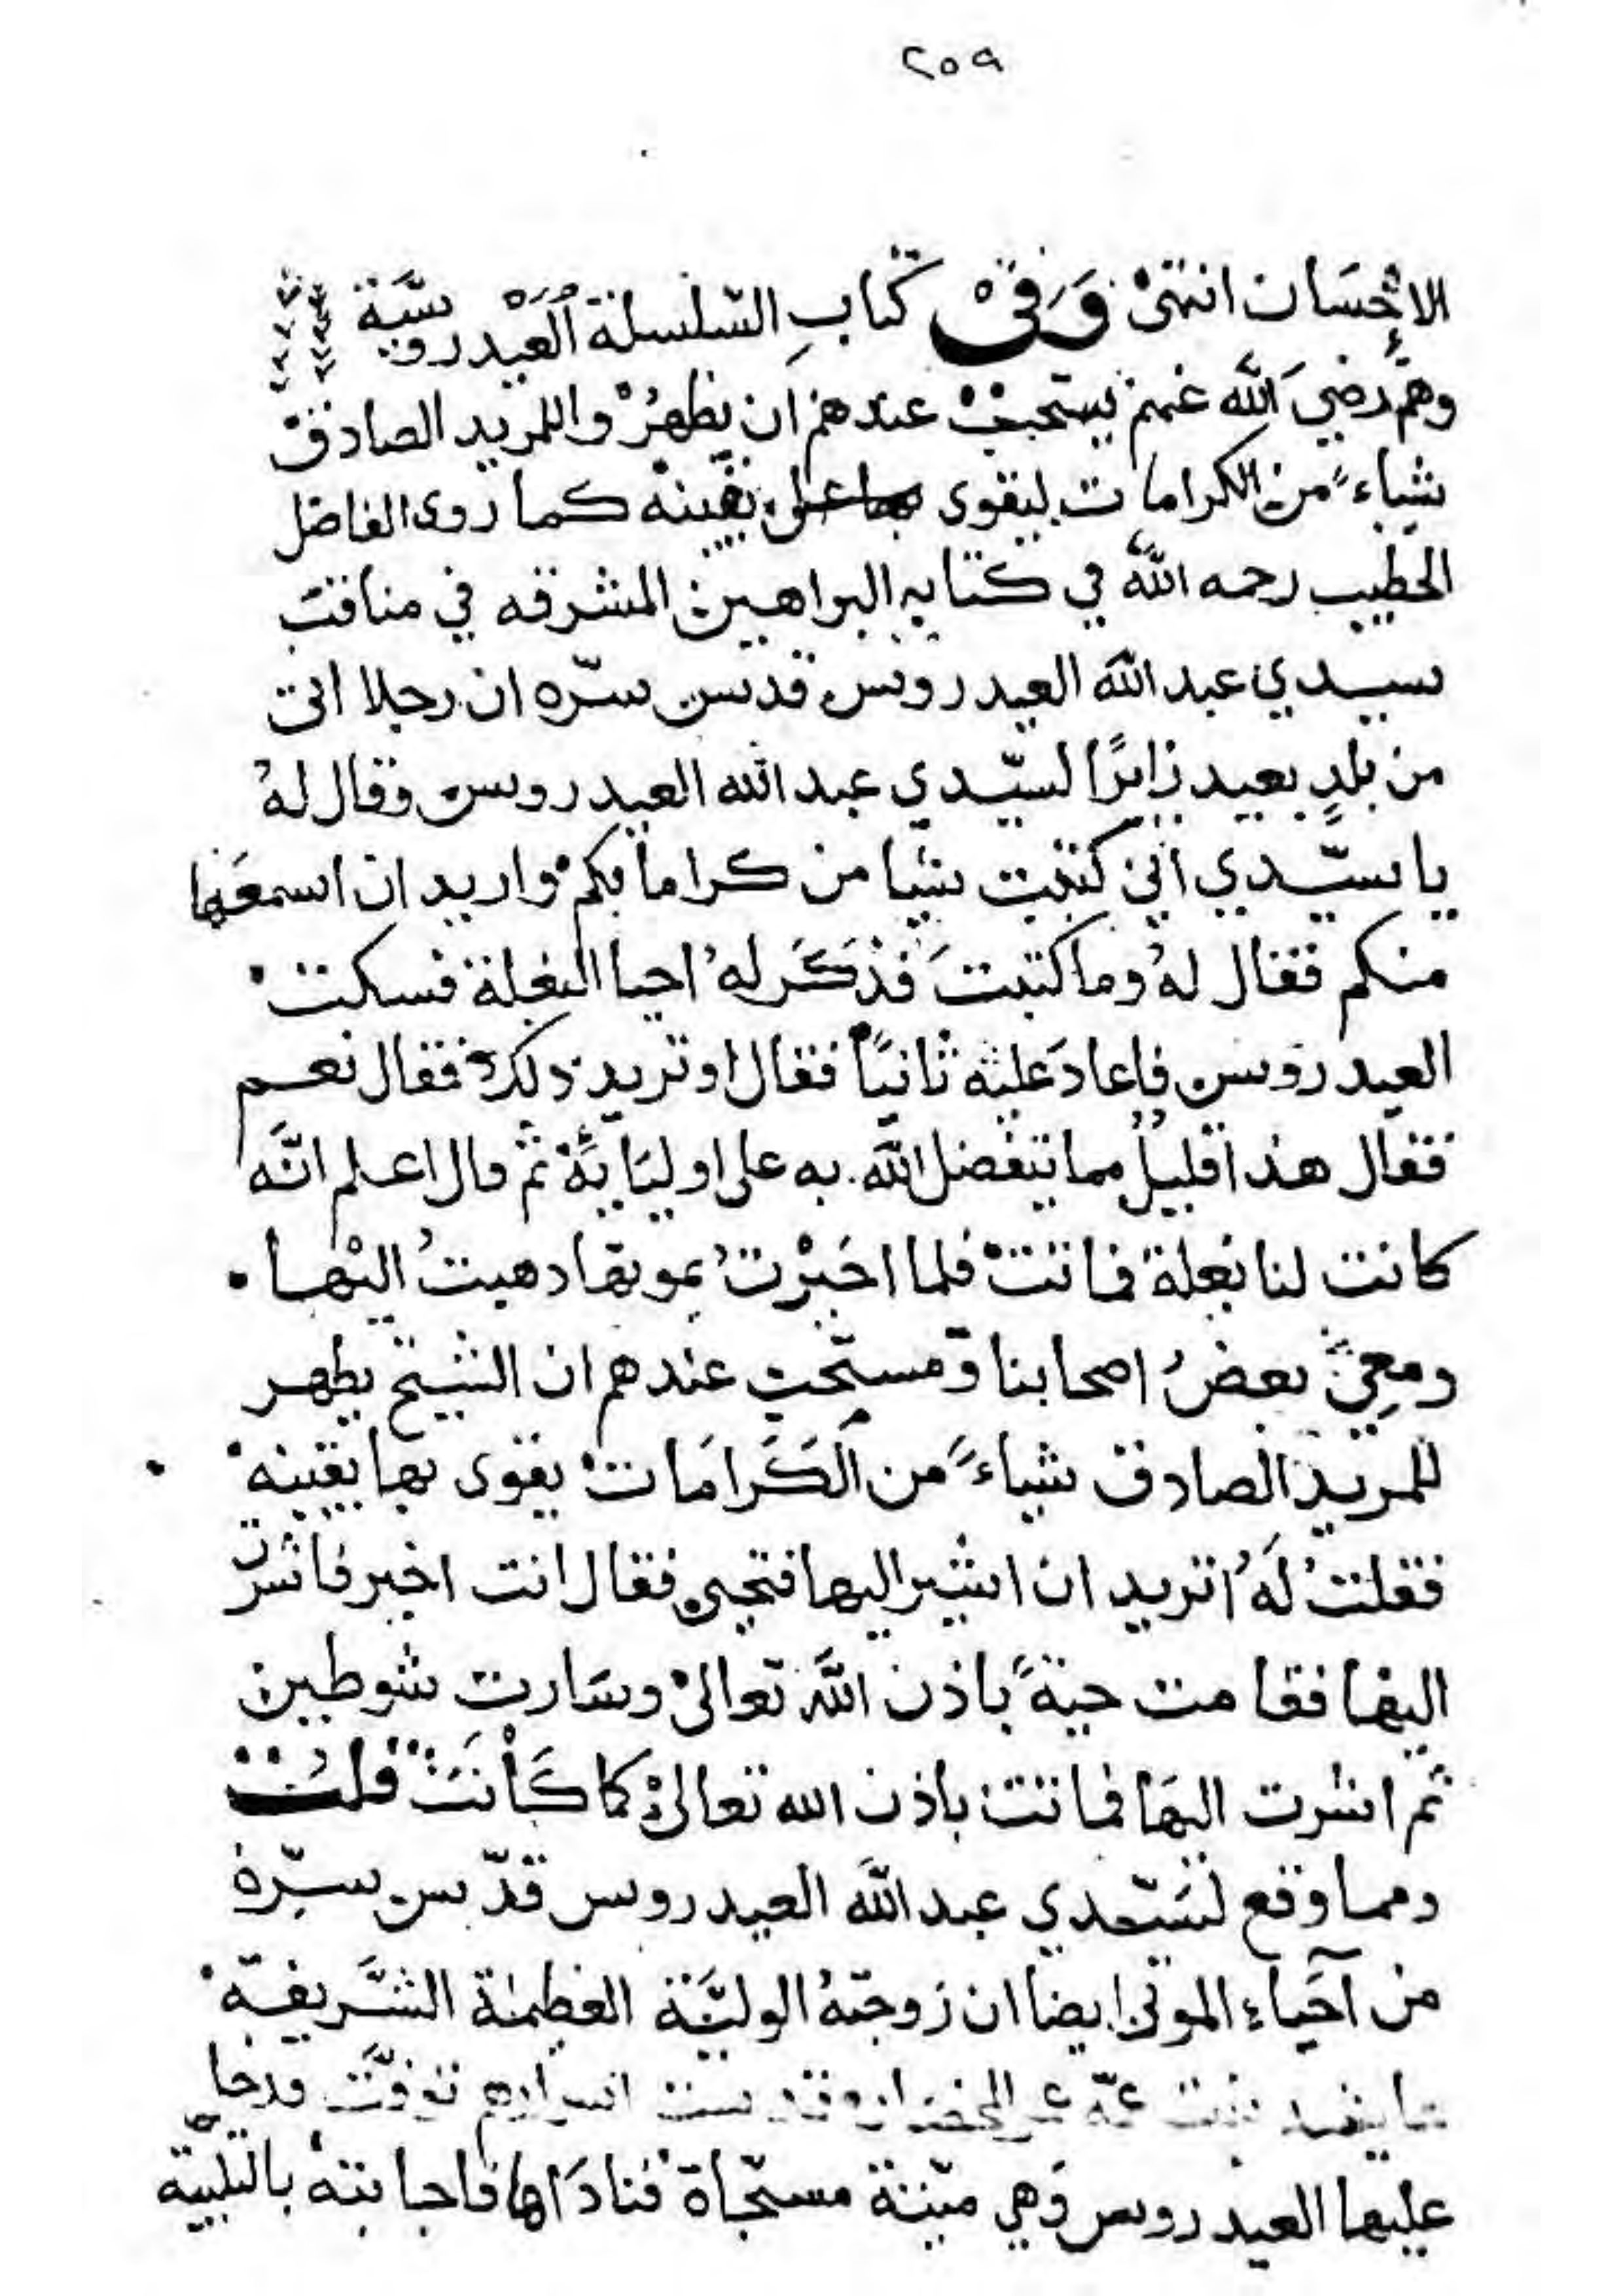 ٢٥٩
الاحْسَان انتهىٰ وَفِيْ كتابِ السّلسلة العَيْدروسيَّة
وهم رضيَ الله عنهم يستحبّ عندهم ان يظهرُوا للمريد الصادق
شياءً من الكرامات ليقوى بها على يقينه كما روى الفاضل
الخطيب رحمه الله في كتابه البراهين المشرقه في مناقب
سيدي عبد الله العيدروس قدس سرّه ان رجلا اتى
من بلدٍ بعيد زايرًا لسيّدي عبد الله العيدروس وقال لهُ
يا سيّدي اني كتبت شيا من كراماتكم واريد ان اسمعَها
منكم فقال لهُ وما كتبتَ فذكَرَ لهُ احيا البغلة فسكت
العيدروس فاعادَ عليه ثانيًا فقال او تريد ذلك فقال نعم
فقال هذا قليل مما يتفضل الله به على اوليَايهِ ثم قال اعلم انَّه
كانت لنا بغلة فماتتْ فلما اخبرْتُ بموتها ذهبتُ اليْها
ومعِيْ بعضُ اصحابنا ومستحب عندهم ان الشيخ يظهر
للمريد الصادق شياءً من الكَرَامَات يقوى بها يقينه
فقلتُ لَهُ اتريد ان اشير اليها فتحيى فقال انت اخبر فاشرت
اليها فقامت حيةً باذن الله تعالىٰ وسَارت شوطين
ثم اشرت اليهَا فماتت باذن الله تعالىٰ كما كَانَتْ قلت
ومما وقع لسَيّدي عبد الله العيدروس قدّس سرّه
من آحيَاءِ الموتىٰ ايضا ان زوجتهُ الوليَّة العظيمة الشَّريفة
عايشه بنت عمّه عمر المحضار توفّت فدخل
عليها العيدروس وَهي ميّتة مسجّاة فنادَاها فاجابته بالتلبيَة